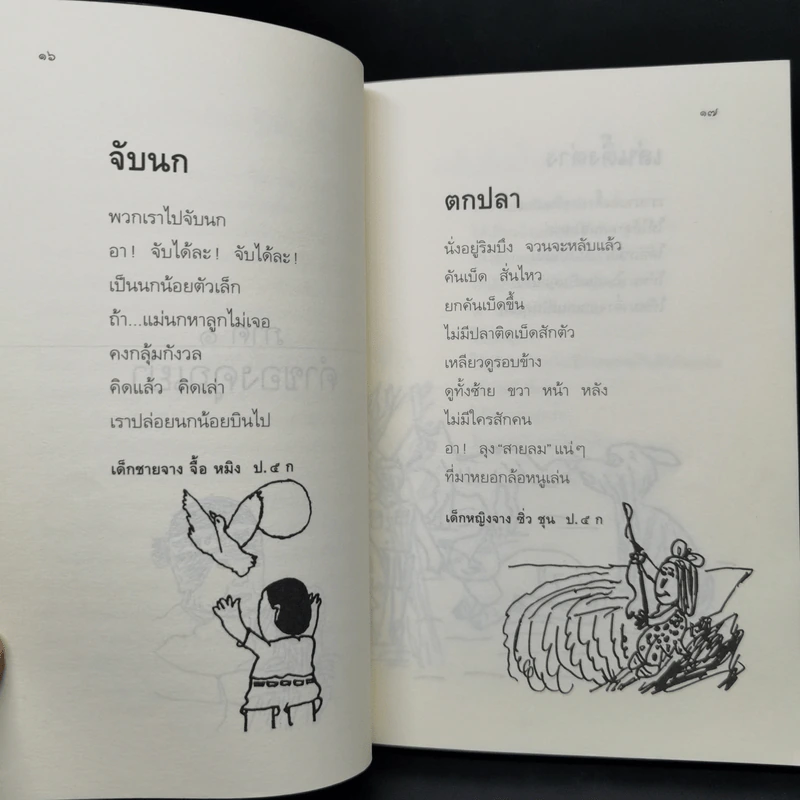 ๑๖
จับนก
พวกเราไปจับนก
อา! จับได้ละ! จับได้ละ!
เป็นนกน้อยตัวเล็ก
ถ้า...แม่นกหาลูกไม่เจอ
คงกลุ้มกังวล
คิดแล้ว คิดเล่า
เราปล่อยนกน้อยบินไป
เด็กชายจาง จื้อ หมิง ป.๕ ก
๑๗
ตกปลา
นั่งอยู่ริมบึง จวนจะหลับแล้ว
คันเบ็ด สั่นไหว
ยกคันเบ็ดขึ้น
ไม่มีปลาติดเบ็ดสักตัว
เหลียวดูรอบข้าง
ดูทั้งซ้าย ขวา หน้า หลัง
ไม่มีใครสักคน
อา! ลุง "สายลม" แน่ๆ
ที่มาหยอกล้อหนูเล่น
เด็กหญิงจาง ซิ่ว ชุน ป.๕ ก